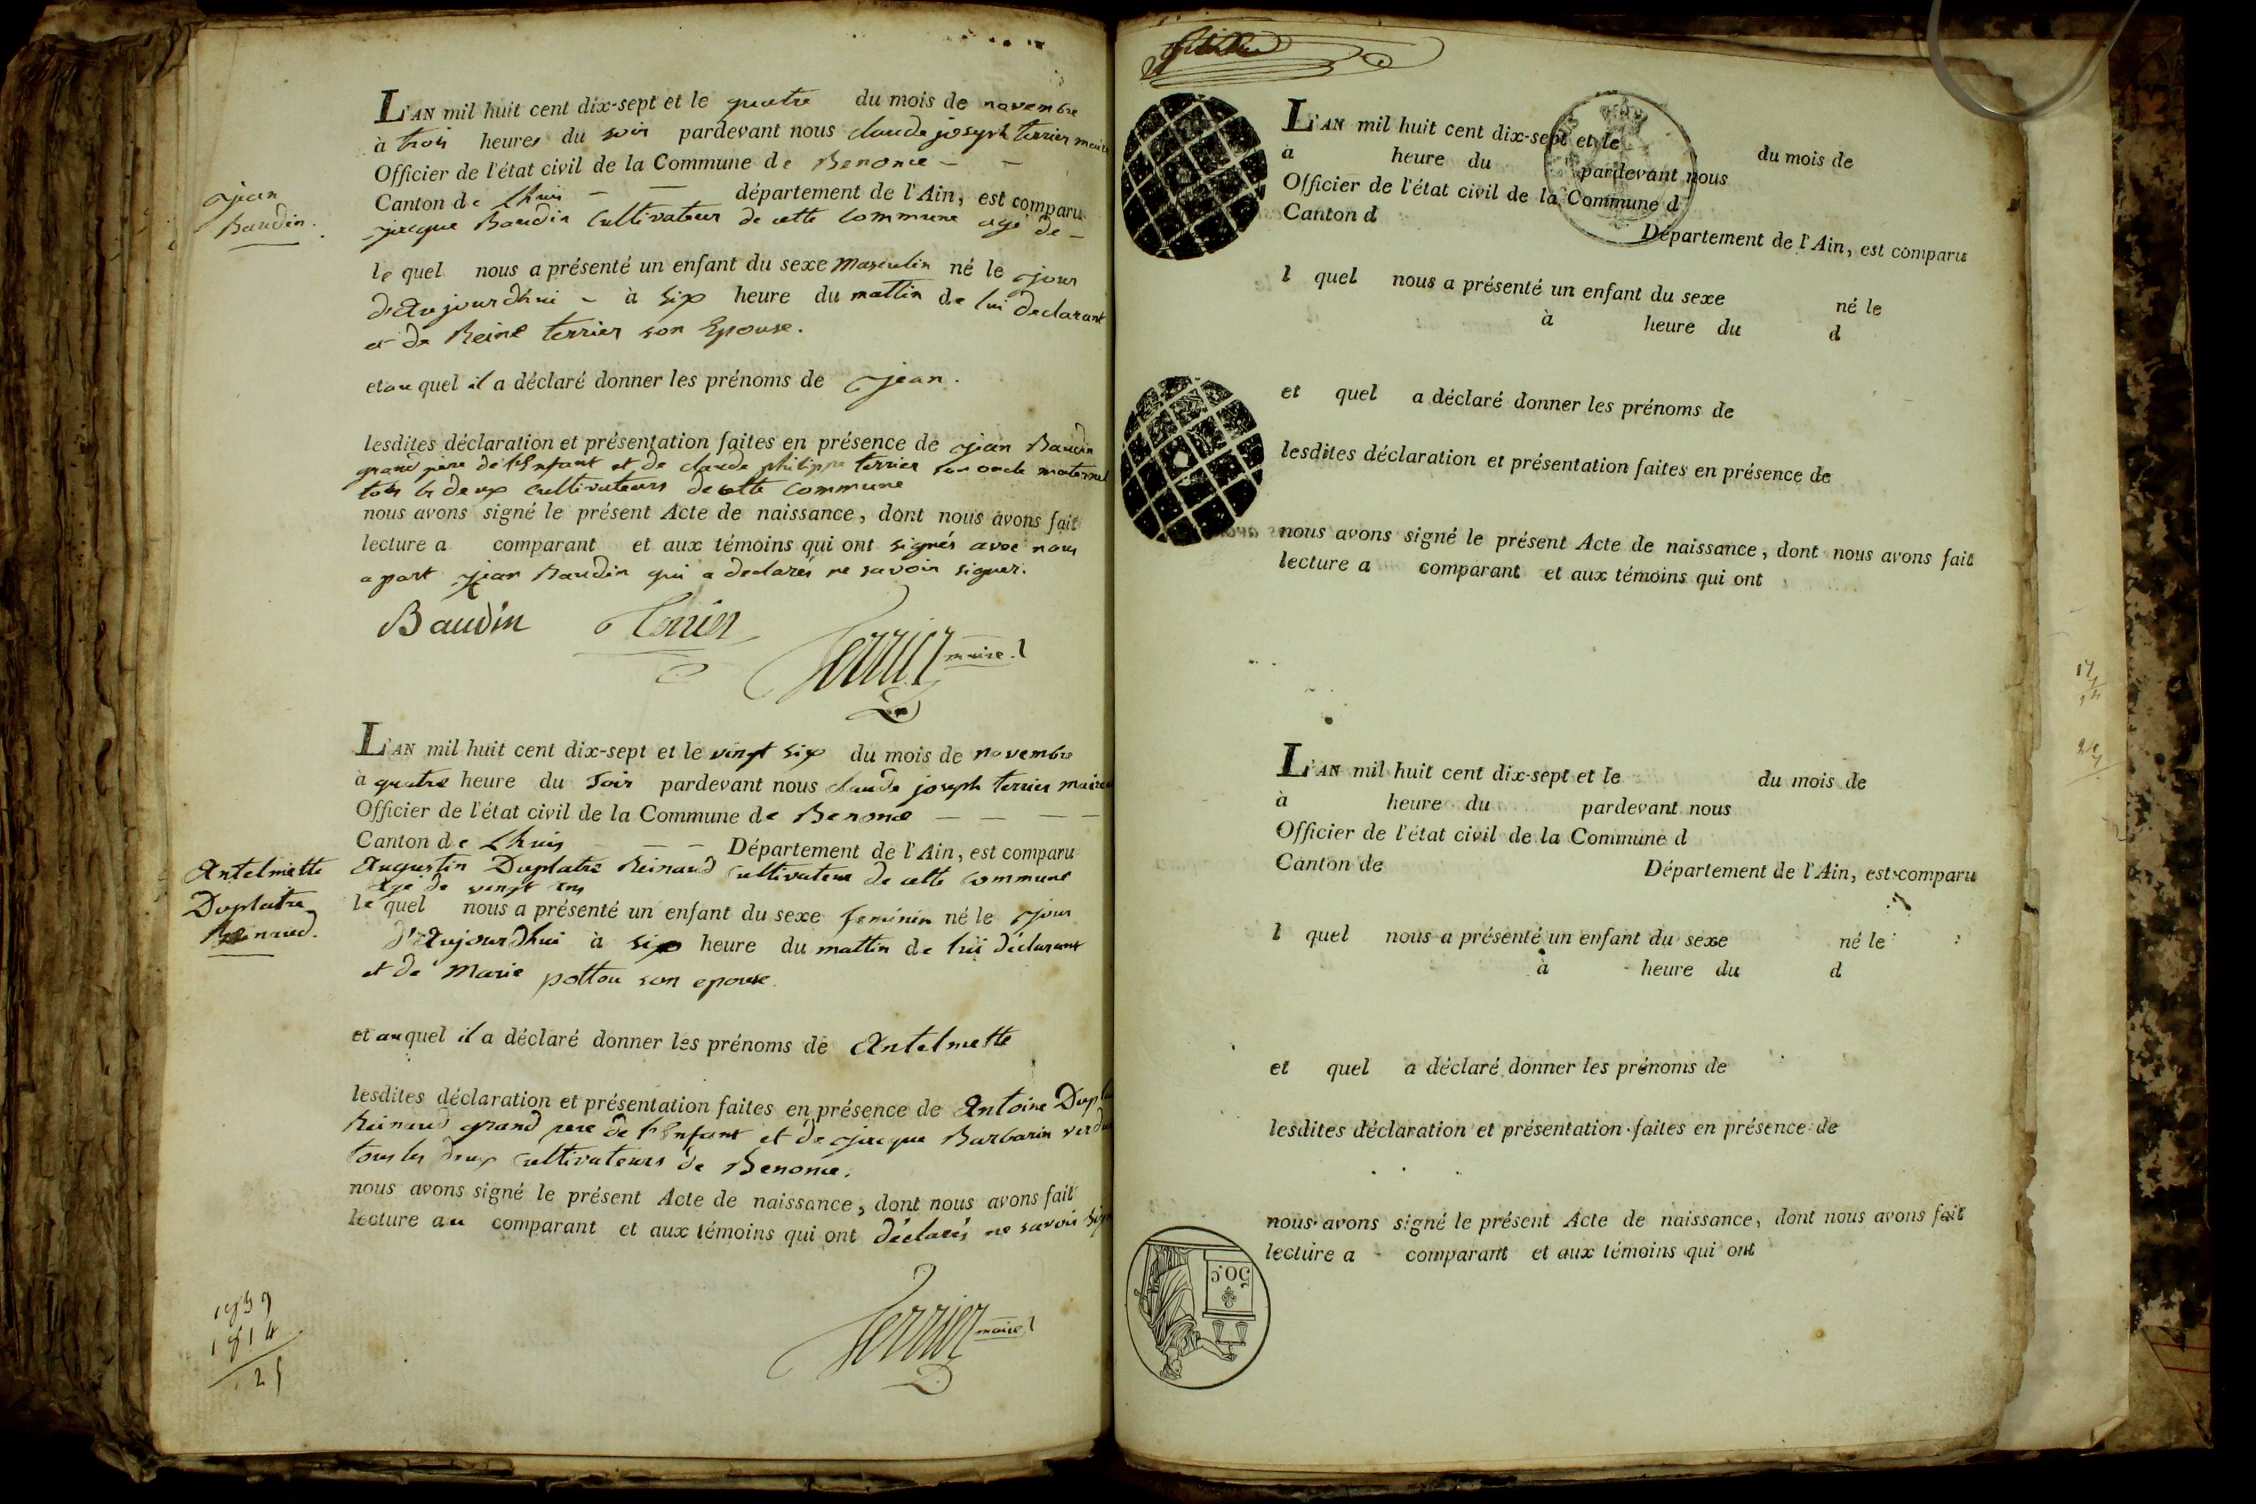 L'AN mil huit cent dix-sept et le quatre du mois de novembre
à trois heures du soir pardevant nous claude joseph terrier maire
Officier de l'état civil de la Commune de Benonce
Canton de Lhuis département de l'Ain, est comparu
jacque Baudin Cultivateur de cette commune agé de
Jean
Baudin.
le quel nous a présenté un enfant du sexe masculin né le jour
d'Aujourdhui à six heure du mattin de lui declarant
et de Reine terrier son Epouse.
et au quel il a déclaré donner les prénoms de jean.
lesdites déclaration et présentation faites en présence de jean Baudin
grand pere de l'Enfant et de claude philippe terrier son oncle maternel
tous les deux cultivateurs de cette commune
nous avons signé le présent Acte de naissance, dont nous avons fait
lecture a comparant et aux témoins qui ont signés avec nous
a part jean Baudin qui a declarés ne savoir signer.
Baudin Terrier
Terrier maire
L'AN mil huit cent dix-sept et le vingt six du mois de novembre
à quatre heure du Soir pardevant nous claude joseph terrier maire
Officier de l'état civil de la Commune de Benonce
Canton de Lhuis Département de l'Ain, est comparu
Augustin Duplatre Reinaud Cultivateur de cette commune
Agé de vingt ans
Antelmette
Duplatre
Reinaud.
le quel nous a présenté un enfant du sexe feminin né le jour
d'Aujourdhui à six heure du mattin de lui déclarant
et de Marie pottou son epouse.
et au quel il a déclaré donner les prénoms de Antelmette
lesdites déclaration et présentation faites en présence de Antoine
Reinaud grand pere de l'Enfant et de jacque Barbarin
tous les deux cultivateurs de Benonce.
nous avons signé le présent Acte de naissance, dont nous avons fait
lecture au comparant et aux témoins qui ont déclarés ne savoir
Terrier maire
1839
1814
25
L'AN mil huit cent dix-sept et le du mois de
à heure du pardevant nous
Officier de l'état civil de la Commune d
Canton d Département de l'Ain, est comparu
l quel nous a présenté un enfant du sexe né le
à heure du d
et quel a déclaré donner les prénoms de
lesdites déclaration et présentation faites en présence de
nous avons signé le présent Acte de naissance, dont nous avons fait
lecture a comparant et aux témoins qui ont
L'AN mil huit cent dix-sept et le du mois de
à heure du pardevant nous
Officier de l'état civil de la Commune d
Canton de Département de l'Ain, est comparu
l quel nous a présenté un enfant du sexe né le
à heure du d
et quel a déclaré donner les prénoms de
lesdites déclaration et présentation faites en présence de
nous avons signé le présent Acte de naissance, dont nous avons fait
lecture a comparant et aux témoins qui ont
50.c